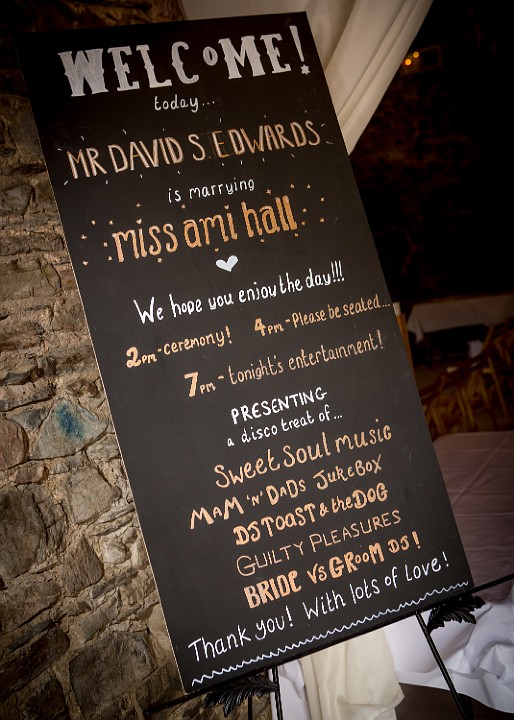 WELCOME!
today...
MR DAVID S EDWARDS
is marrying
miss ami hall
We hope you enjoy the day!!!
2PM - ceremony! 4PM - Please be seated...
7PM - tonight's entertainment!
PRESENTING
a disco treat of...
Sweet Soul music
MAM 'N' DADS JUKEBOX
DS TOAST & the DOG
GUILTY PLEASURES
BRIDE VS GROOM DS!
Thank you! With lots of Love!